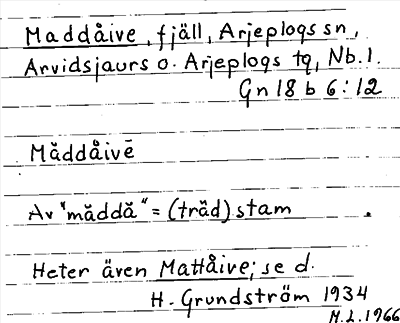 Maddåive, fjäll, Arjeplogs sn,
Arvidsjaurs o. Arjeplogs tg, Nb.l.
Gn 18 b 6:12
Măddåivē
Av "măddă" = (träd)stam
Heter även Mattåive; se d.
H. Grundström 1934
M.L. 1966